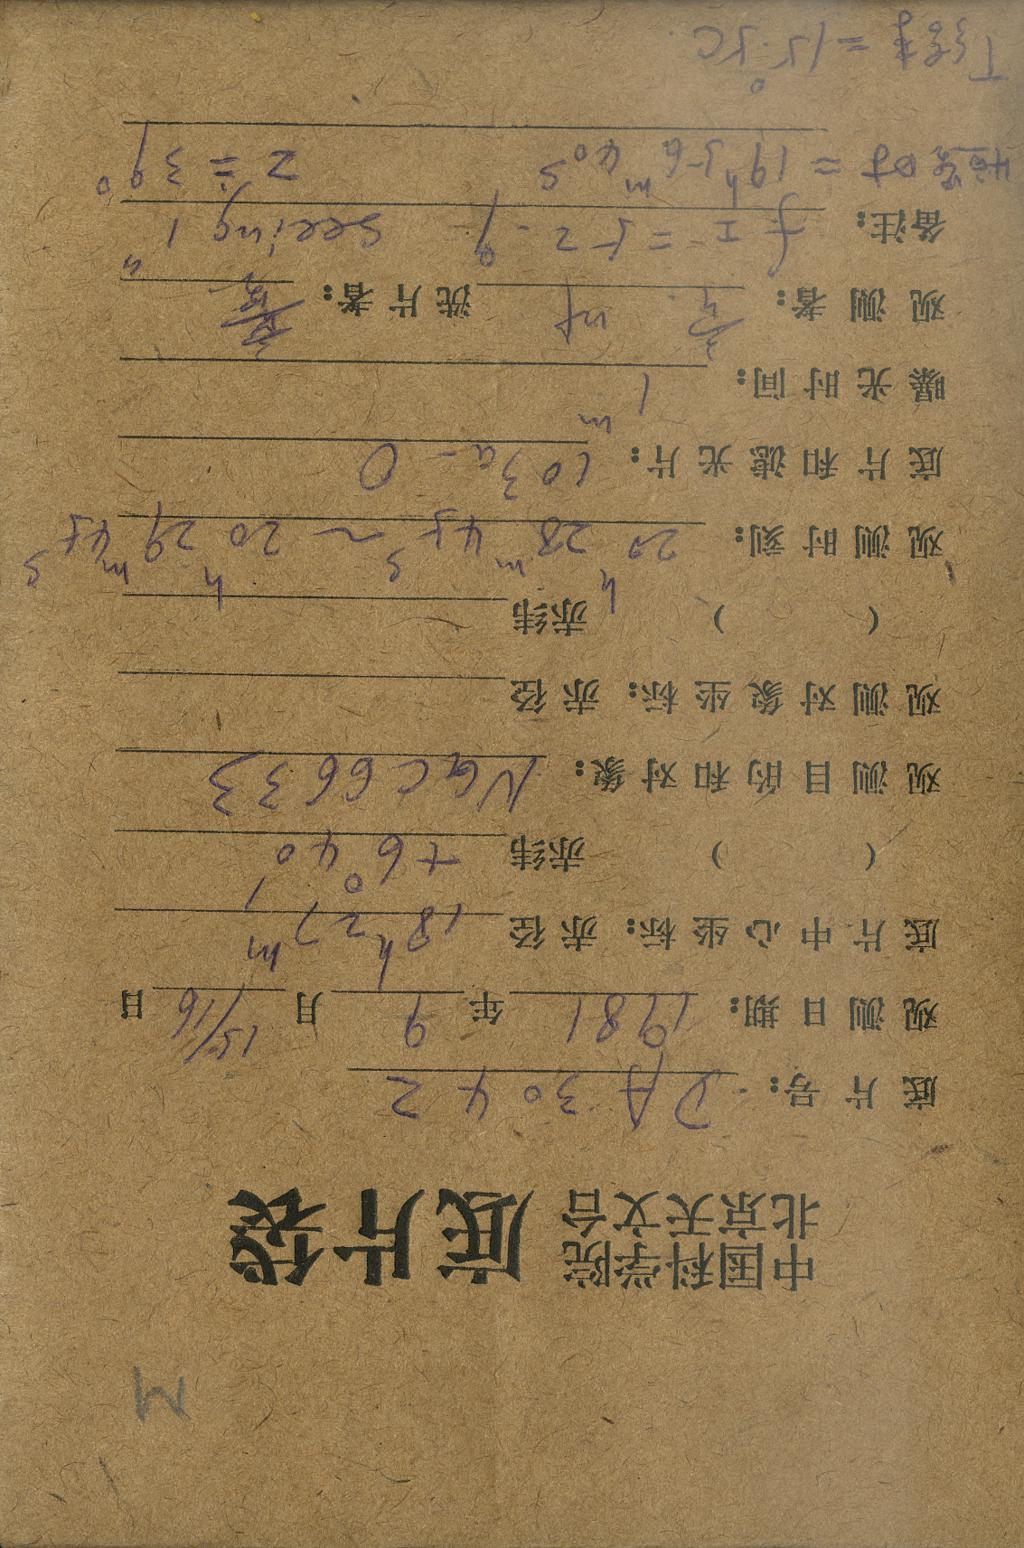 M
中国科学院
北京天文台 底片袋
底片号: DA 3042
观测日期: 1981 年 9 月 15/16 日
底片中心坐标: 赤径 18h 27m
( ) 赤纬 +6° 40′
观测目的和对象: NGC 6633
观测对象坐标: 赤径
( ) 赤纬
观测时刻: 20h 28m 45s ~ 20h 29m 45s
底片和滤光片: 103a-O
曝光时间: 1m
观测者: 洗片者:
备注: seeing 1"
恒星时 = 19h 56m 40s z = 39°
= 15.5°C